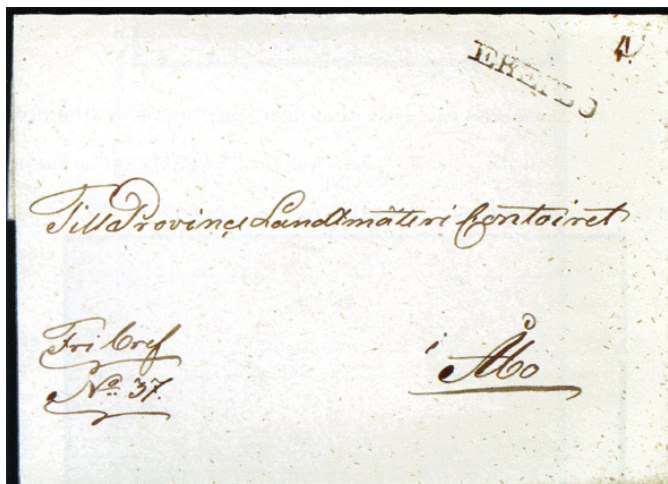 Till Province Landtmäteri Contoiret
Fri bref
No 37.
i Åbo